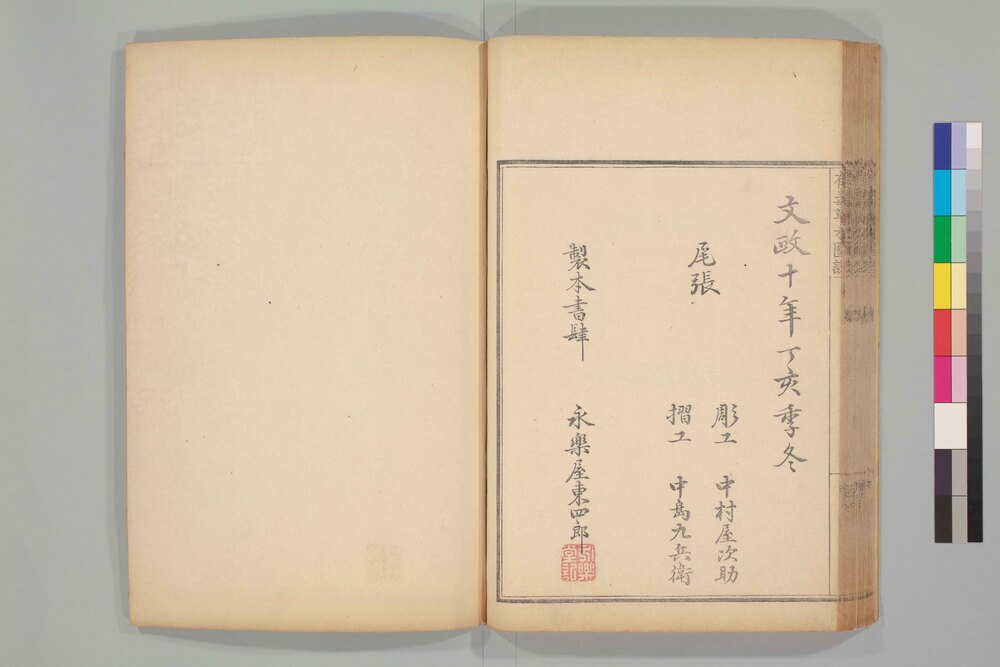 文政十年丁亥季冬
尾張
彫工 中村屋次助
摺工 中島九兵衛
製本書肆 永樂屋東四郎